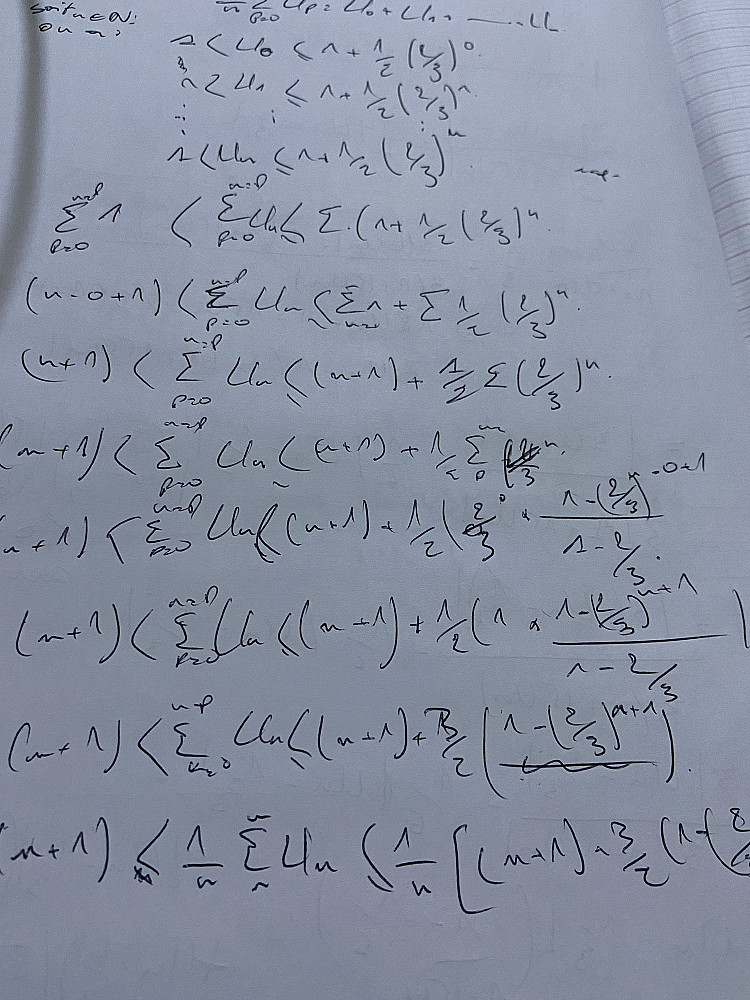 Soit n ∈ N:
on a:
1/n Σ_{p=0} U_p = U_0 + U_1 + ........ U
1 < U_0 ≤ 1 + 1/2 (2/3)^0.
1 < U_1 ≤ 1 + 1/2 (2/3)^1.
: : :
1 < U_n ≤ 1 + 1/2 (2/3)^n.
Σ_{p=0}^{n=p} 1 < Σ_{p=0}^{n=p} U_n ≤ Σ. (1 + 1/2 (2/3)^n.
(n-0+1) < Σ_{p=0}^{n=p} U_n ≤ Σ 1 + Σ 1/2 (2/3)^n.
(n+1) < Σ_{p=0}^{n=p} U_n ≤ (n+1) + 1/2 Σ (2/3)^n.
(n+1) < Σ_{p=0}^{n=p} U_n ≤ (n+1) + 1/2 Σ_0^n (2/3)^n.
(n+1) < Σ_{p=0}^{n=p} U_n ≤ (n+1) + 1/2 (2/3)^0 × (1-(2/3)^{n-0+1})/(1-2/3).
(n+1) < Σ_{p=0}^{n=p} U_n ≤ (n+1) + 1/2 (1 × (1-(2/3)^{n+1})/(1-2/3))
(n+1) < Σ^{n=p} U_n ≤ (n+1) + 3/2 (1-(2/3)^{n+1}).
(n+1) ≤ 1/n Σ^n U_n ≤ 1/n [(n+1) + 3/2 (1-(2/3